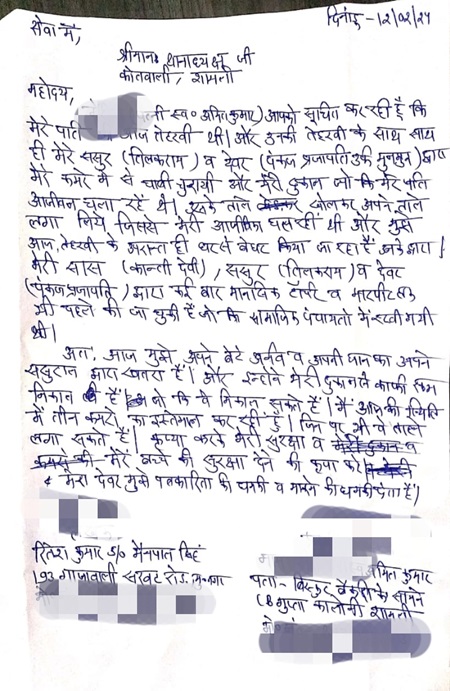 दिनांक - 12/02/24
सेवा में,
श्रीमान थानाध्यक्ष जी
कोतवाली, शामली
महोदय,
पत्नी स्व० अमित कुमार) आपको सूचित कर रही है कि
मेरे पति आज तेहरवी थी। और उनकी तेहरवी के साथ साथ
ही मेरे ससुर (तिलकराम) व देवर (पंकज प्रजापति उर्फ मुनमुन) द्वारा
मेरे कमरे में से चाबी चुरायी और मेरी दुकान जो कि मेरे पति
आजीवन चला रहे थे। उसके ताले खोलकर अपने ताले
लगा लिये जिससे मेरी आजीविका चल रही थी और मुझे
आज तेहरवी के उपरान्त ही घर से बेघर किया जा रहा है द्वारा।
मेरी सास (कान्ती देवी), ससुर (तिलकराम) व देवर
(पंकज प्रजापति) द्वारा कई बार मानसिक टॉर्चर व मारपीट
भी पहले की जा चुकी है जो कि सामाजिक पंचायतो में रखी गयी
थी।
अतः आज मुझे, अपने बेटे व अपनी जान का अपने
ससुराल द्वारा खतरा है। और इन्होने मेरी दुकान से काफी
निकाल है जो कि ये निकाल सकते है। मैं आज की स्थिति
में तीन कमरो का इस्तेमाल कर रही हूँ। जिन पर भी ये ताले
लगा सकते है। कृप्या करके मेरी सुरक्षा व मेरी दुकान व
मेरे बच्चे की सुरक्षा देने की कृपा करे।
मेरा देवर मुझे पत्रकारिता की धमकी व मारने की धमकी देता है।
रितेश कुमार S/o मैनपाल सिंह
193 गाजावाली सरवट रोड़
अमित कुमार
पता - बिस्कुट बैकरी के सामने
गुप्ता कालोनी शामली
मो०